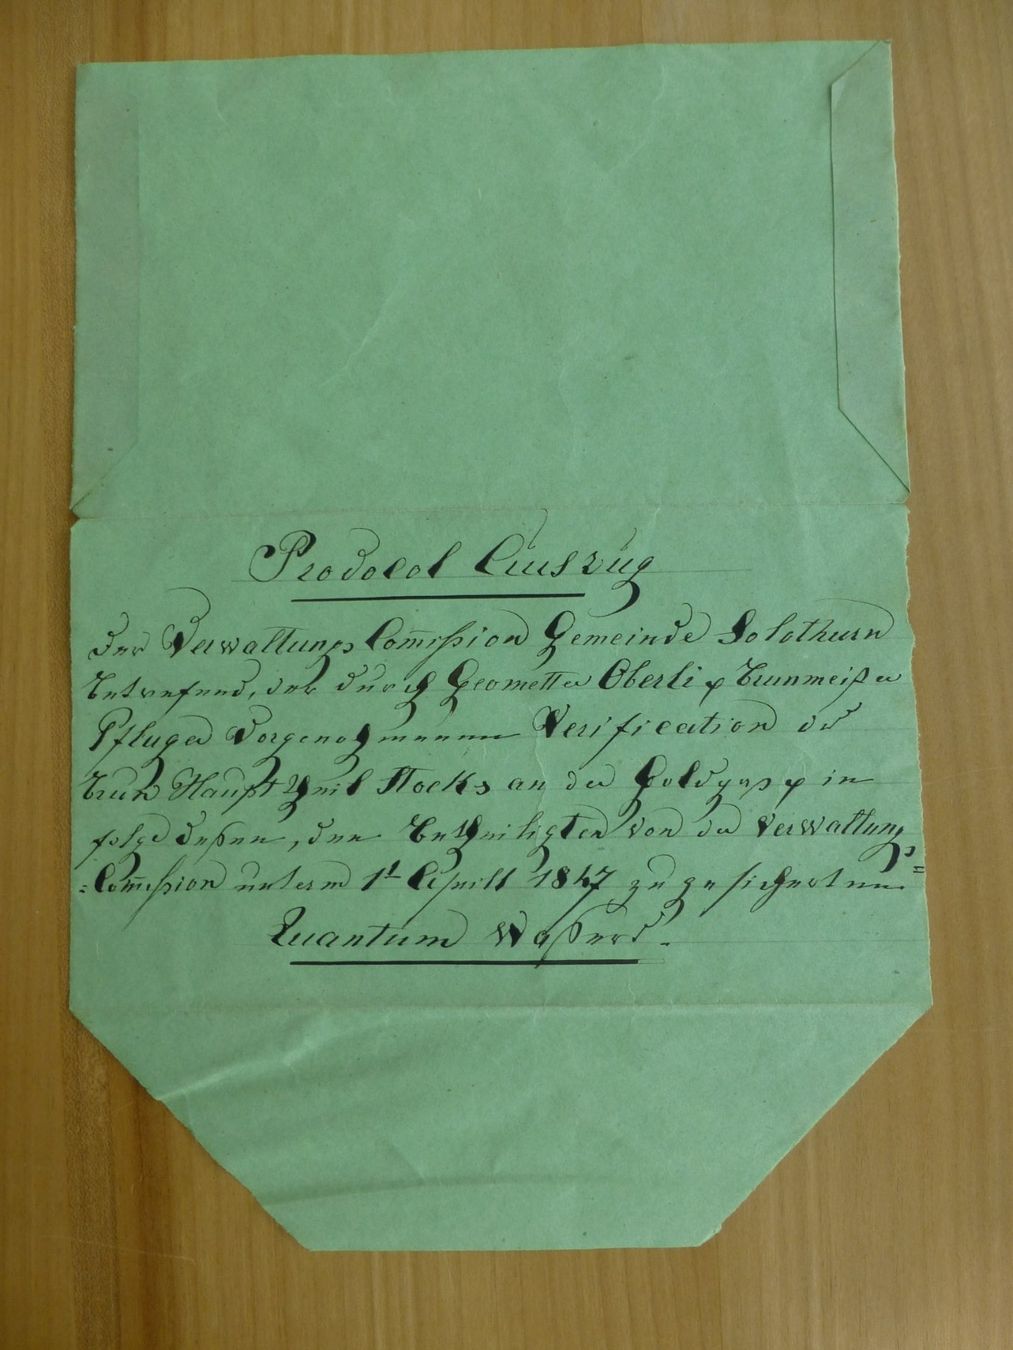 Prodocol Auszug
der Verwaltungs Com̅ission Gemeinde Solothurn
Betrefend, der durch Geometter Oberli & Brunmeister
Pfluger Vorgenohmmenen Verification der
Brun Haupt Theil Stocks an der Goldgass & in
folge dessen, den Betheiligten von der Verwaltungs=
=Com̅ission unterm 1t Aprill 1847 zugesicherten
Quantum Wassers.